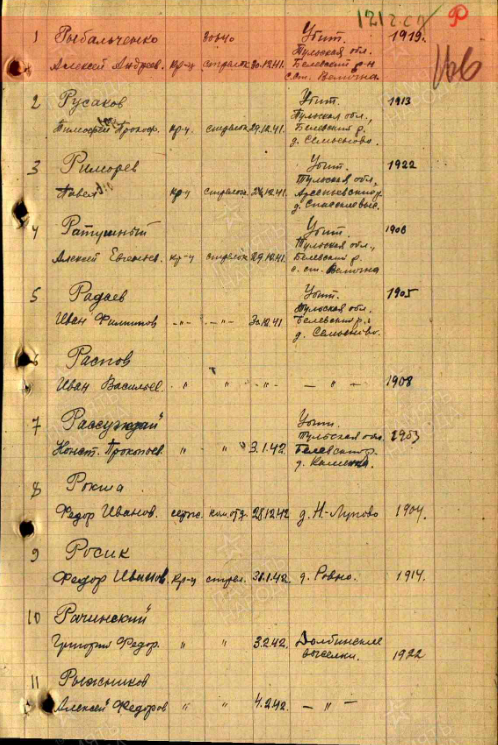 1212 сп Р
166
1 Рыбальченко Убит. 1919.
Тульская обл.
Алексей Андреев. кр-ц стрелок 30.12.41. Белевский р-н
ст. Велична
2 Русаков Убит. 1913
Тульская обл.,
Тимофей Прокоф. кр-ц. стрелок 29.12.41. Белевский р.
д. Семьюново.
3 Риморев Убит. 1922
Тульская обл,
Павел кр-ц стрелок 26.12.41. Арсеньевский р
4 Ратушный Убит. 1906
Тульская обл.,
Алексей Евгеньев. кр-ц стрелок 29.12.41. Белевский р.
ст. Велична
5 Радаев Убит. 1905
Тульская обл.
Иван Филиппов -"- -"- 30.12.41 Белевский р.
д. Семьюново.
6 Распов
Иван Васильев. " " -"- -"- 1908
7 Рассуждай Убит.
Тульская обл
Конст. Прокопьев. " " 3.1.42. Белевский р. 1903
д. Каменка.
8 Рокша
Федор Иванов. серж. ком. отд. д. Н-Лупово 1904.
9 Росик
Федор Иванов кр-ц стрел. д. Ровно. 1914.
10 Рачинский
Григорий Федор. " " 3.2.42. Долбинские
выселки. 1922
11 Рыжников
Алексей Федоров " " 4.2.42. -"-